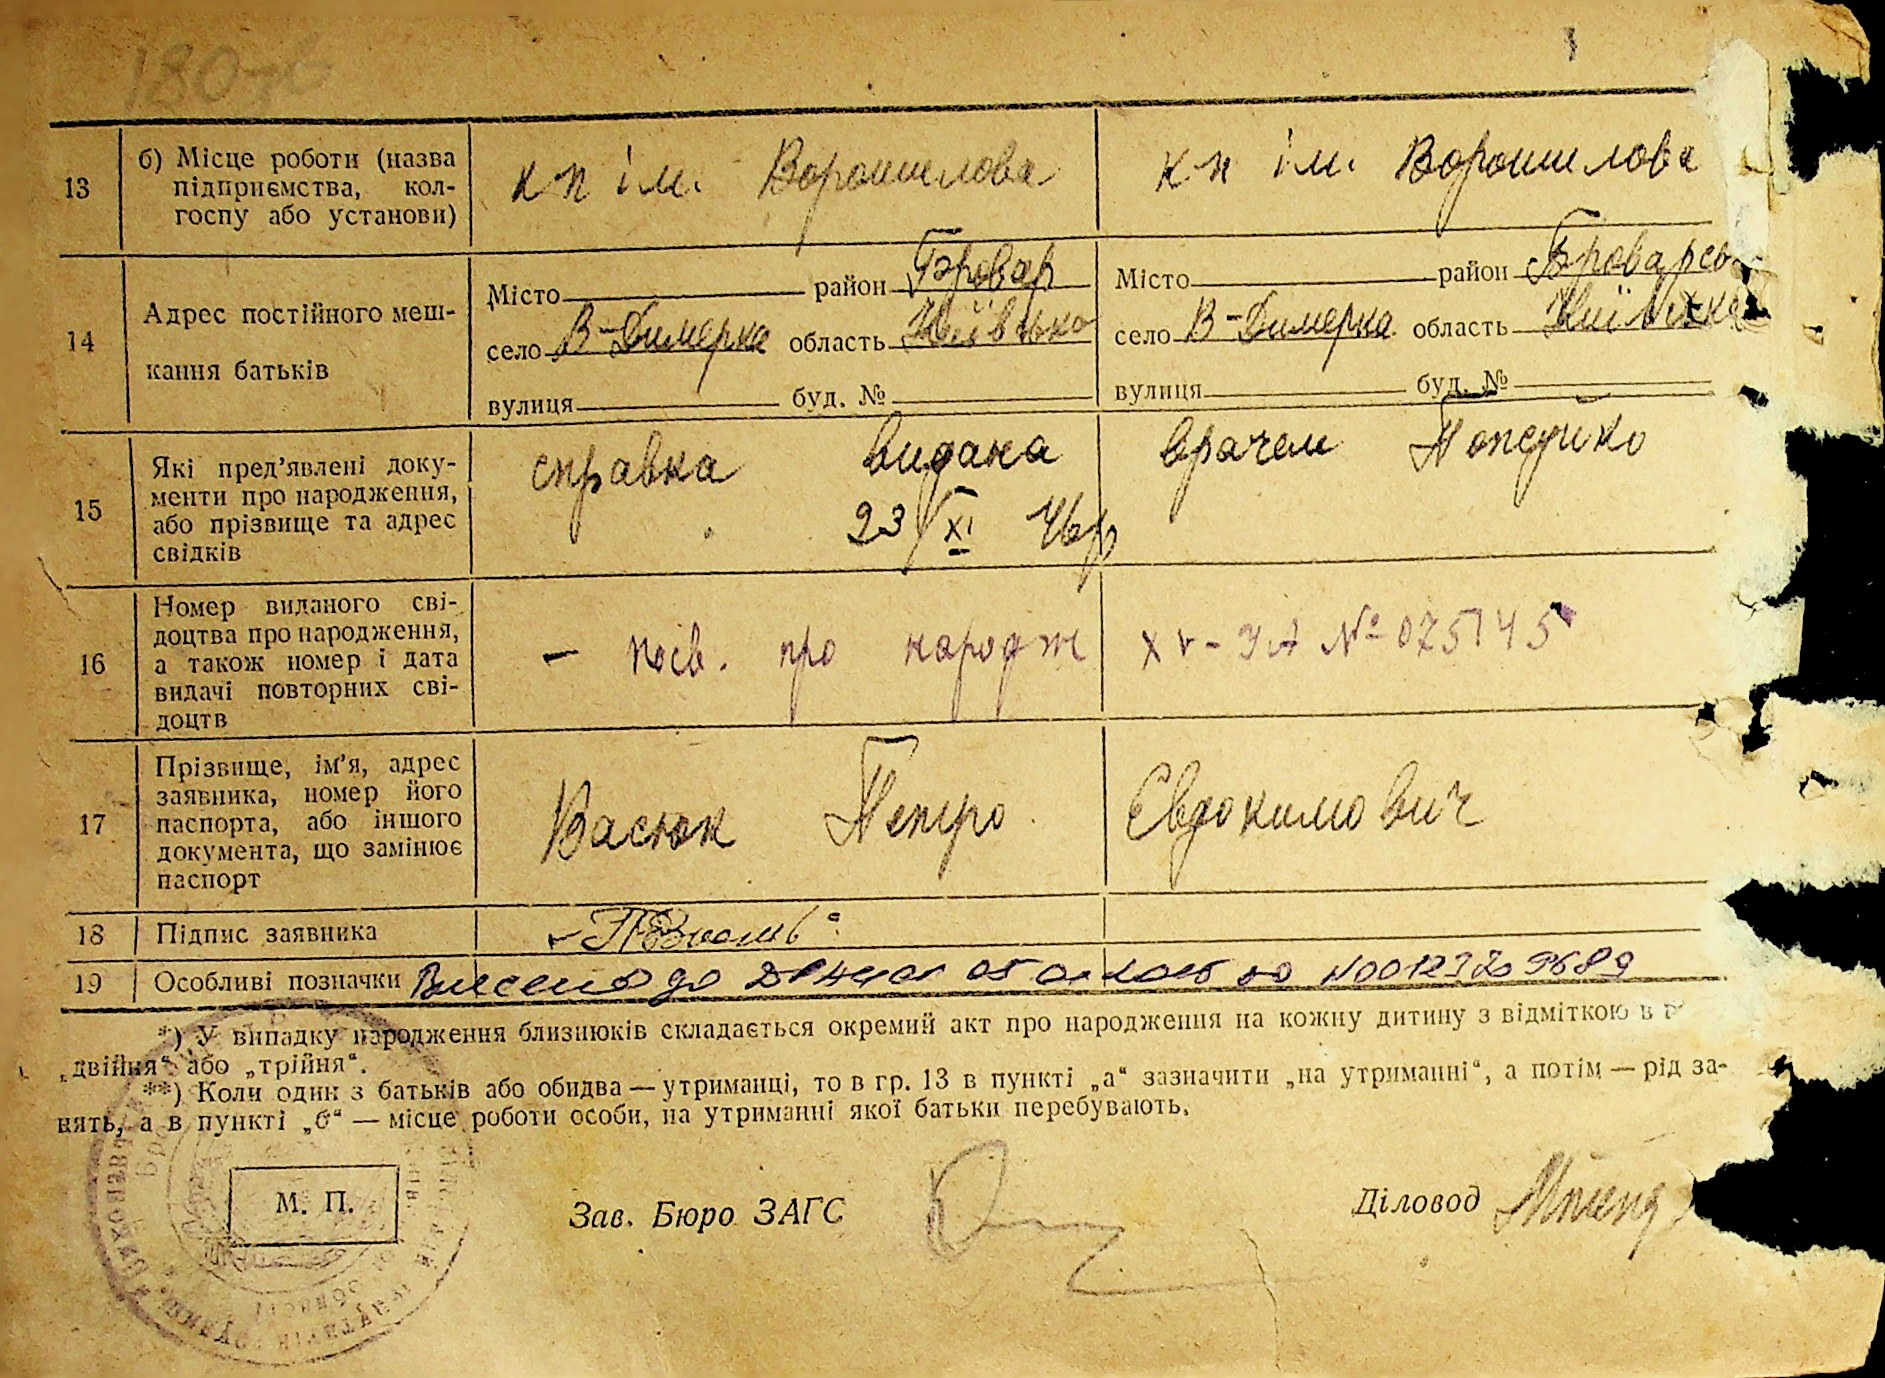 180
13
б) Місце роботи (назва
підприємства, кол-
госпу або установи)
к п ім. Ворошилова
к п ім. Ворошилова
14
Адрес постійного меш-
кання батьків
Місто район Бровар
село В-Димерка область Київсько
вулиця буд. №
Місто район Броварсь
село В-Димерка область
вулиця буд. №
15
Які пред'явлені доку-
менти про народження,
або прізвище та адрес
свідків
справка видана врачем
23/XI 46р
16
Номер виданого сві-
доцтва про народження,
а також номер і дата
видачі повторних сві-
доцтв
– посв. про народж XV-УА № 075145
17
Прізвище, ім'я, адрес
заявника, номер його
паспорта, або іншого
документа, що замінює
паспорт
Васюк Петро Євдокимович
18
Підпис заявника
19
Особливі позначки Внесено до № 00123209689
*) У випадку народження близнюків складається окремий акт про народження на кожну дитину з відміткою в
„двійня“ або „трійня“.
**) Коли один з батьків або обидва — утриманці, то в гр. 13 в пункті „а“ зазначити „на утриманні“, а потім — рід за-
нять, а в пункті „б“ — місце роботи особи, на утриманні якої батьки перебувають.
М. П.
Зав. Бюро ЗАГС
Діловод